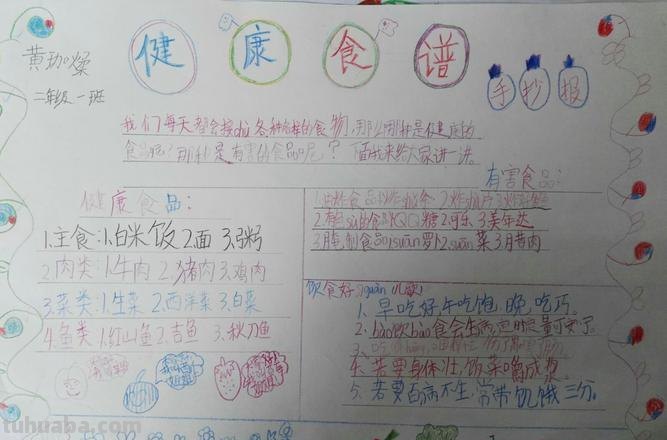 健康食谱
手抄报
黄
二年级一班
我们每天都会接chù各种各样的食物,那么哪种是健康的
食品呢?哪种是有害的食品呢?下面我来给大家讲一讲。
健康食品:
1.主食:1.白米饭 2.面 3.粥
2.肉类:1.牛肉 2.猪肉 3.鸡肉
3.菜类:1.生菜 2.西洋菜 3.白菜
4.鱼类 1.红山鱼 2.吉鱼 3.秋刀鱼
有害食品:
1.油炸食品 2.炸鸡 3.炸
2.有色sù的食品 1.QQ糖 2.可乐 3.美年达
3.腌制食品 1.suān萝卜 2.suān菜 3.腊肉
饮食好习guàn(儿歌)
1.早吃好午吃饱,晚吃巧。
2.bào饮bào食会生病,定时定量可安宁。
4.若要身体壮,饭菜嚼成浆。
5.若要百病不生,常带饥饿三分。
tuhuaba.com